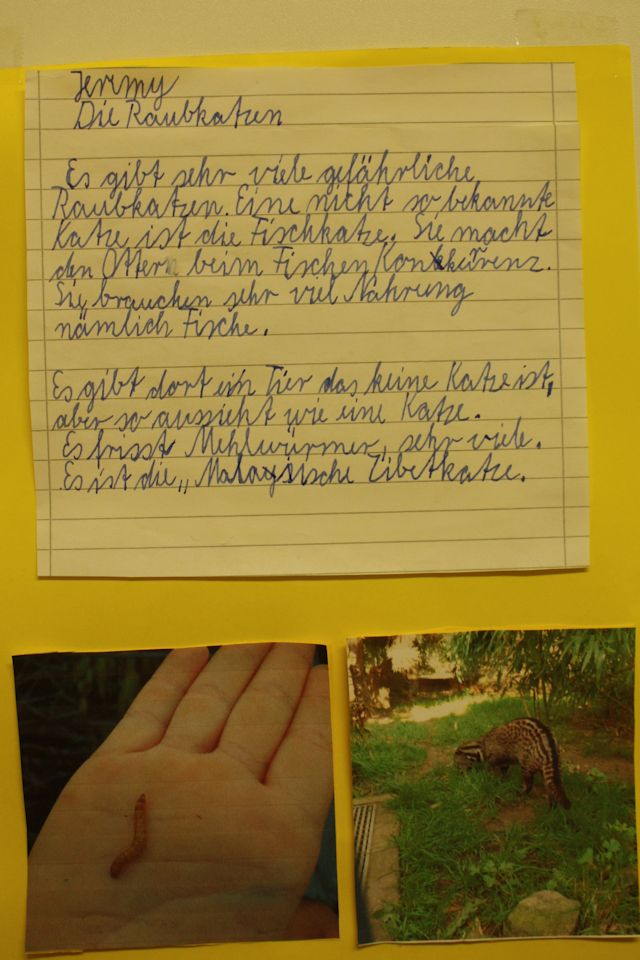 Jeremy
Die Raubkatzen
Es gibt sehr viele gefährliche
Raubkatzen. Eine nicht so bekannte
Katze ist die Fischkatze. Sie macht
den Ottern beim Fischen Konkurrenz.
Sie brauchen sehr viel Nahrung
nämlich Fische.
Es gibt dort ein Tier das keine Katze ist,
aber so aussieht wie eine Katze.
Es frisst Mehlwürmer, sehr viele.
Es ist die „Malaysische Zibetkatze.